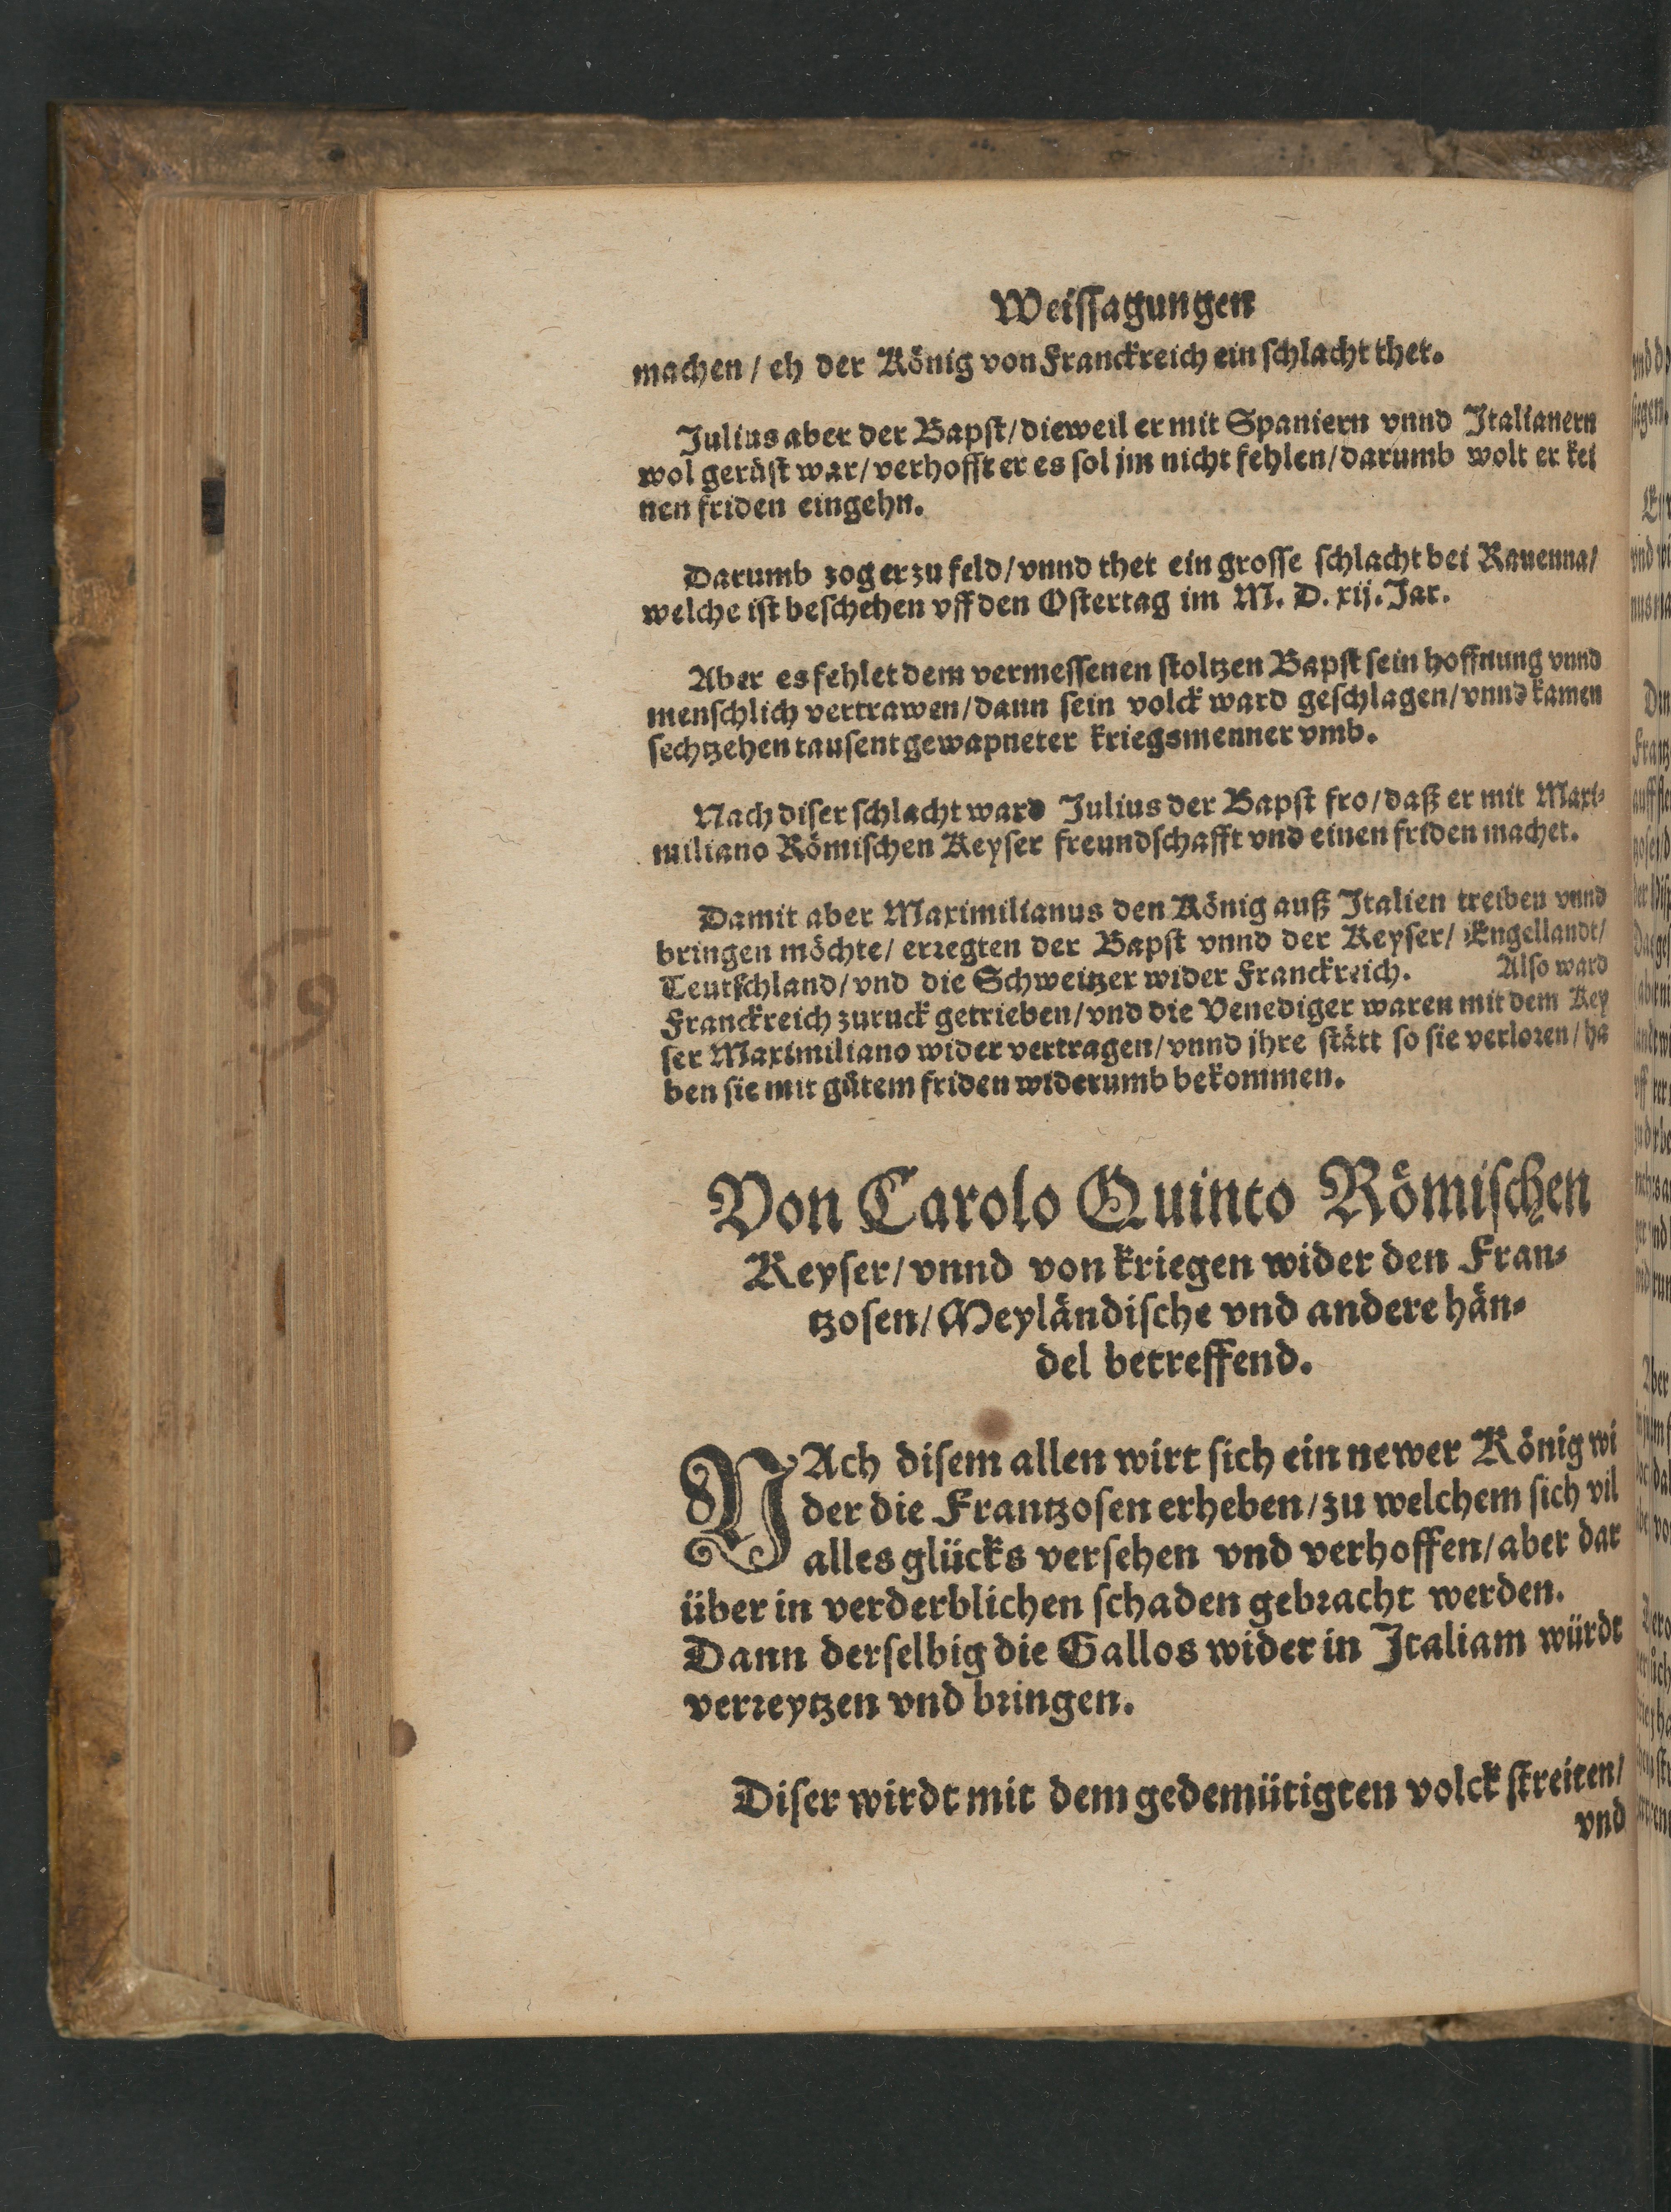 Weiſſagungen
machen / eh der König von Franckreich ein ſchlacht thet.
Julius aber der Bapſt / dieweil er mit Spaniern vnnd Italianern
wol gerüſt war / verhofft er es ſol jm nicht fehlen / darumb wolt er kei
nen friden eingehn.
Darumb zog er zu feld / vnnd thet ein groſſe ſchlacht bei Rauenna /
welche iſt beſchehen vff den Oſtertag im M. D. xij. Jar.
Aber es fehlet dem vermeſſenen ſtoltzen Bapſt ſein hoffnung vnnd
menſchlich vertrawen / dann ſein volck ward geſchlagen / vnnd kamen
ſechtzehen tauſent gewapneter kriegsmenner vmb.
Nach diſer ſchlacht ward Julius der Bapſt fro / daß er mit Maxi⸗
miliano Römiſchen Keyſer freundſchafft vnd einen friden machet.
Damit aber Maximilianus den König auß Italien treiben vnnd
bringen möchte / erꝛegten der Bapſt vnnd der Keyſer / Engellandt /
Teutſchland / vnd die Schweitzer wider Franckreich. Alſo ward
Franckreich zuruck getrieben / vnd die Venediger waren mit dem Key
ſer Maximiliano wider vertragen / vnnd jhre ſtätt ſo ſie verloꝛen / ha
ben ſie mit gůtem friden widerumb bekommen.
Von Carolo Quinto Römiſchen
Keyſer / vnnd von kriegen wider den Fran⸗
tzoſen / Meyländiſche vnd andere hän⸗
del betreffend.
NAch diſem allen wirt ſich ein newer König wi
der die Frantzoſen erheben / zu welchem ſich vil
alles glücks verſehen vnd verhoffen / aber dar
über in verderblichen ſchaden gebꝛacht werden.
Dann derſelbig die Gallos wider in Italiam würdt
verꝛeytzen vnd bꝛingen.
Diſer wirdt mit dem gedemütigten volck ſtreiten /
vnd